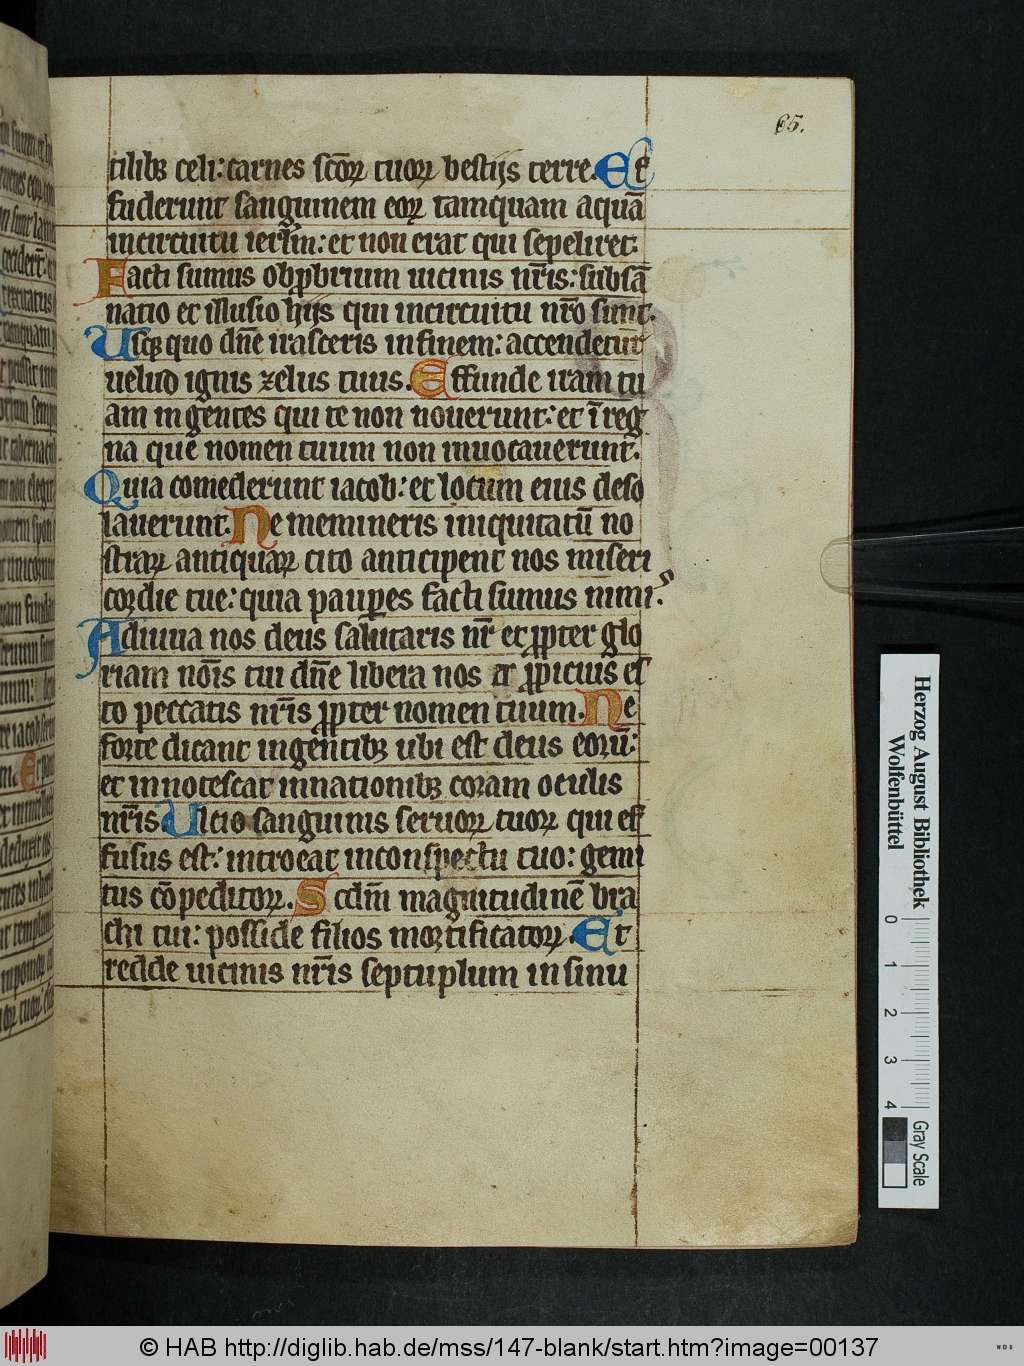 65.
tilibꝫ celi: carnes scōꝝ tuoꝝ bestijs terre. Et
fuderunt sanguinem eoꝝ tamquam aquā
incircuitu ierl̄m: et non erat qui sepeliret:
Facti sumus obp̄brium uicinis nr̄is: subsā
natio et illusio hijs qui incircuitu nr̄o sunt.
Usqꝫ quo dn̄e irasceris in finem: accendetur
uelud ignis zelus tuus. Effunde iram tu
am in gentes qui te non nouerunt: et ī reg
na que nomen tuum non inuocauerunt.
Quia comederunt iacob: et locum eius deso
lauerunt. Ne memineris iniquitatū no
straꝝ antiquaꝝ cito anticipent nos miseri
cordie tue: quia pauꝑes facti sumus nimis.
Adiuua nos deus salutaris nr̄ et ꝓpter glo
riam nōis tui dn̄e libera nos et ꝓpicius es
to peccatis nr̄is ꝓpter nomen tuum. Ne
forte dicant in gentibꝫ ubi est deus eorū:
et innotescat in nationibꝫ coram oculis
nr̄is Ultio sanguinis seruoꝝ tuoꝝ qui ef
fusus est: introeat in conspectu tuo: gemi
tus cōpeditoꝝ. Scdm̄ magnitudinē bra
chi tui: posside filios mortificatoꝝ. Et
redde uicinis nr̄is septuplum in sinu
Herzog August Bibliothek
Wolfenbüttel
0 1 2 3 4
Gray Scale
© HAB http://diglib.hab.de/mss/147-blank/start.htm?image=00137